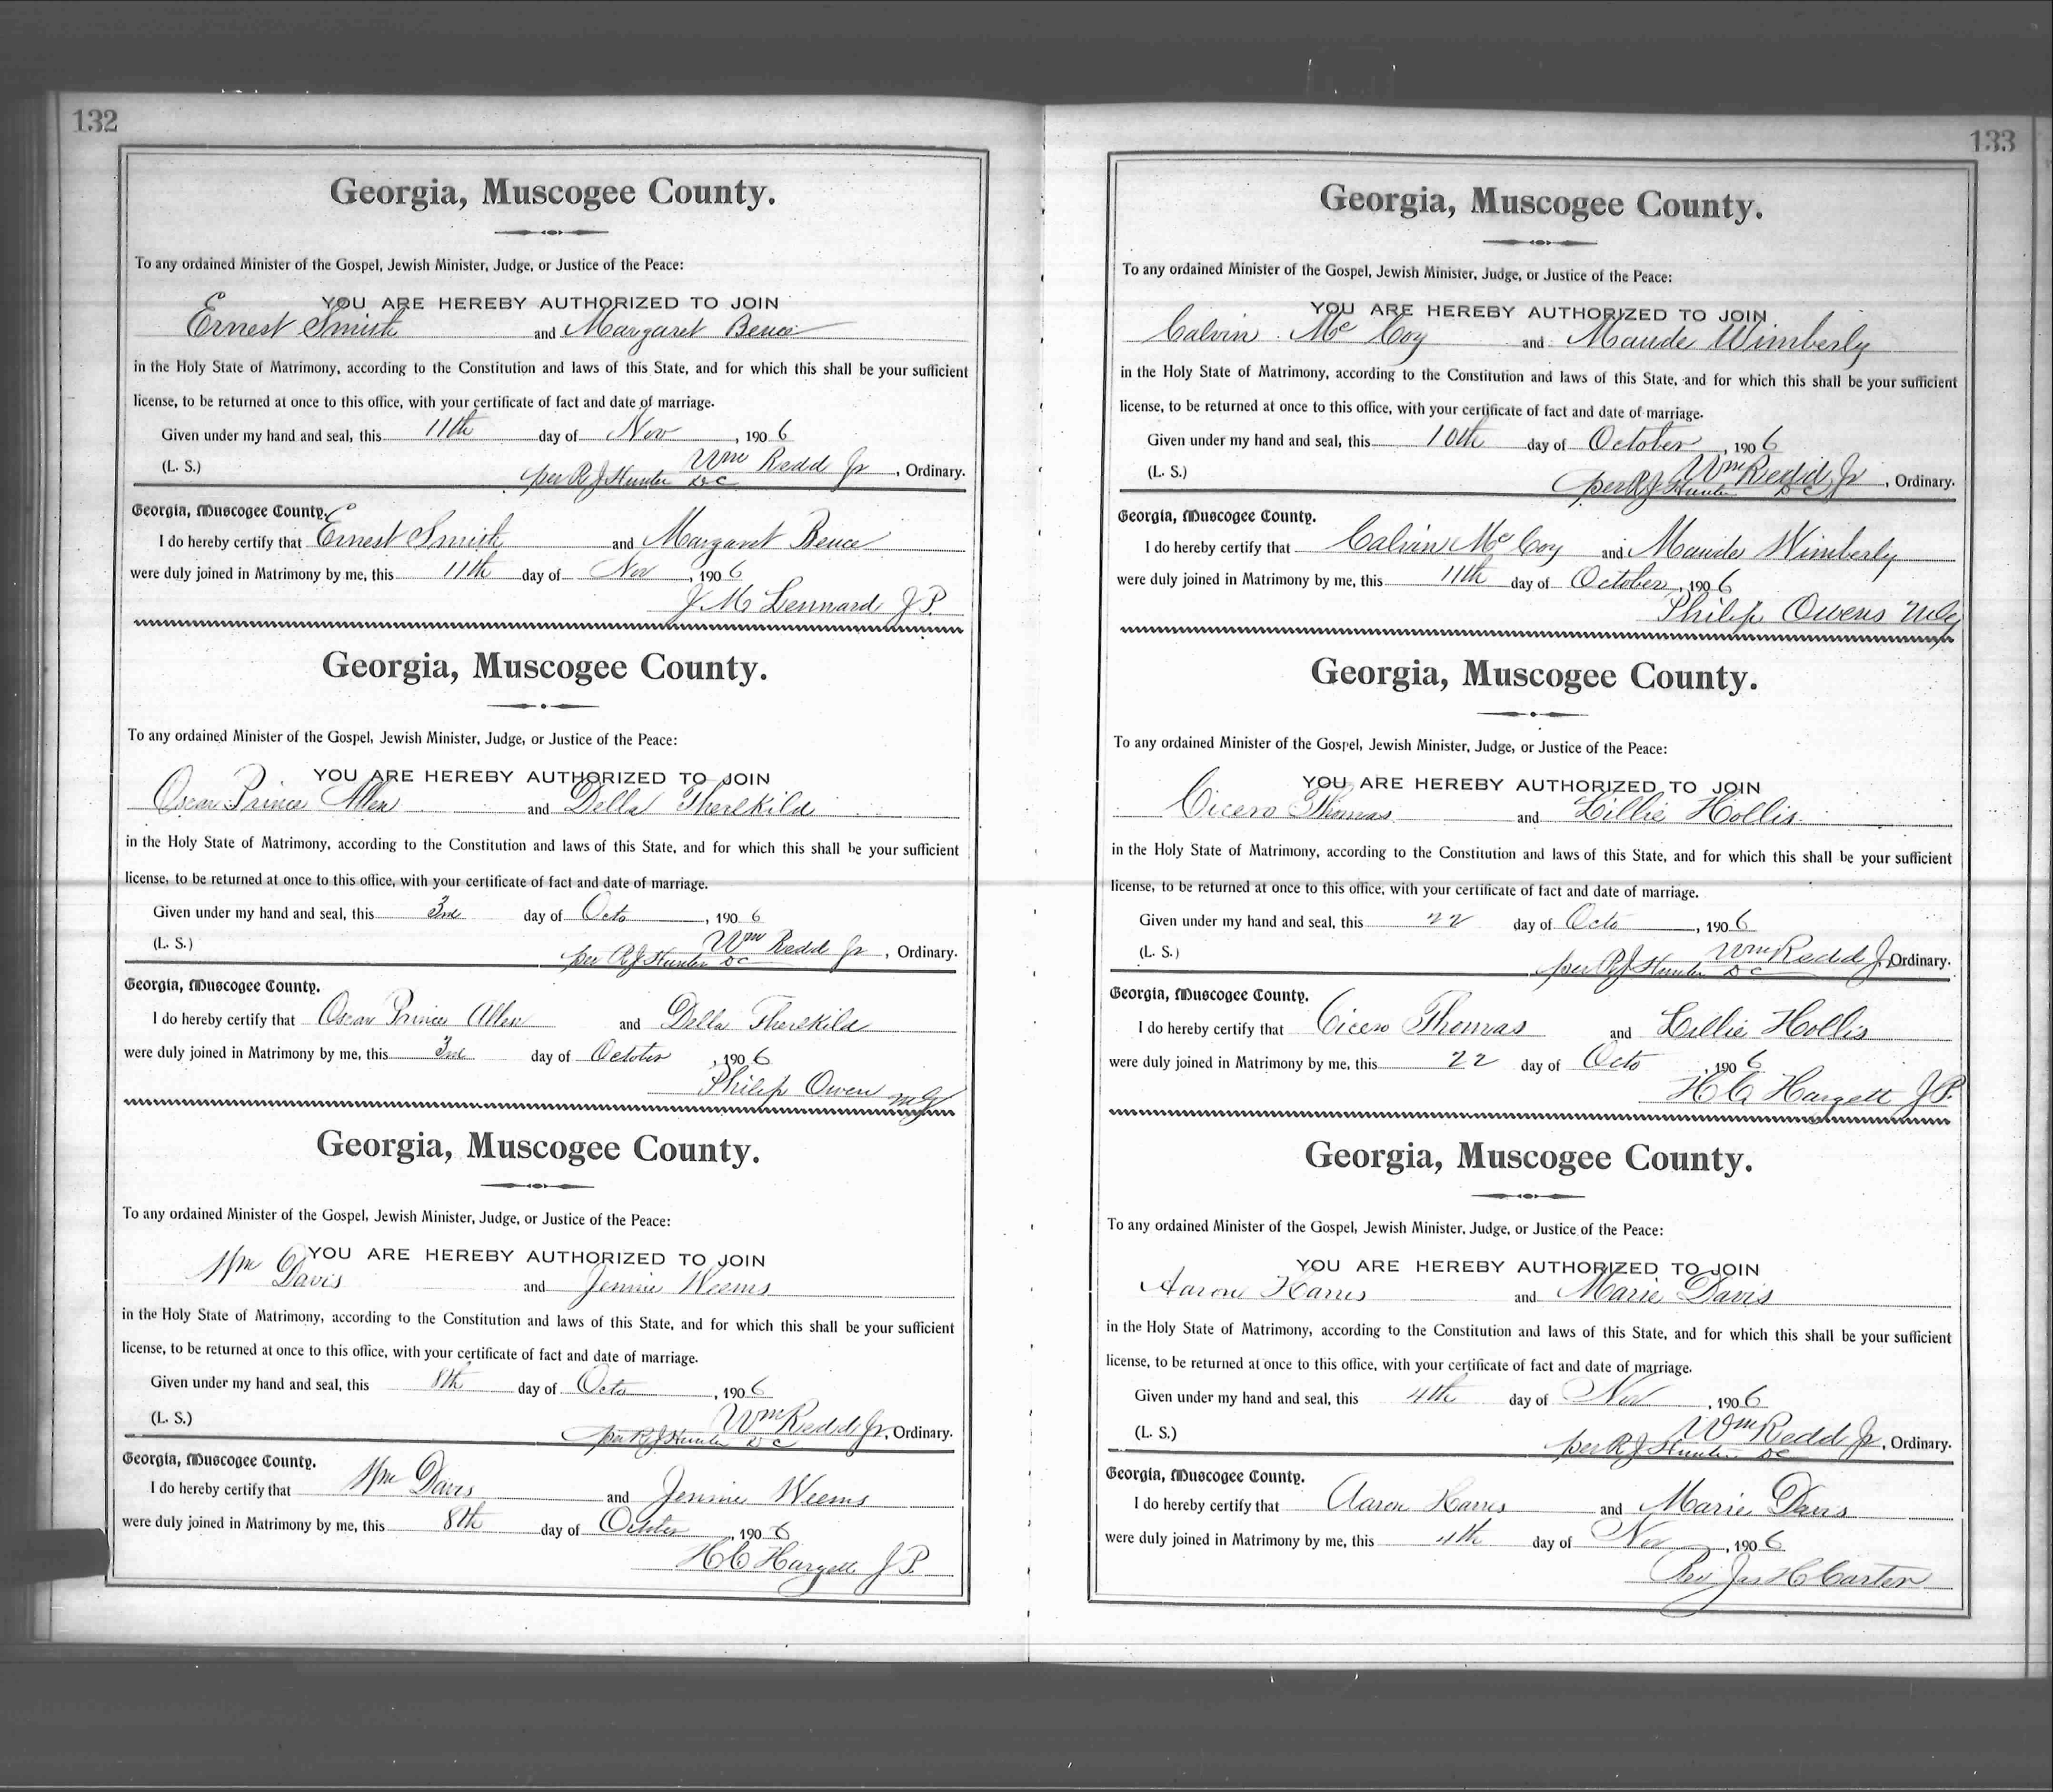 132
Georgia, Muscogee County.
To any ordained Minister of the Gospel, Jewish Minister, Judge, or Justice of the Peace:
YOU ARE HEREBY AUTHORIZED TO JOIN
Ernest Smith and Margaret Bence
in the Holy State of Matrimony, according to the Constitution and laws of this State, and for which this shall be your sufficient
license, to be returned at once to this office, with your certificate of fact and date of marriage.
Given under my hand and seal, this 11th day of Nov, 1906
(L. S.) Wm Redd Jr, Ordinary.
per R J Hunter D C
Georgia, Muscogee County.
I do hereby certify that Ernest Smith and Margaret Bence
were duly joined in Matrimony by me, this 11th day of Nov, 1906
J. M. Lennard J P.
Georgia, Muscogee County.
To any ordained Minister of the Gospel, Jewish Minister, Judge, or Justice of the Peace:
YOU ARE HEREBY AUTHORIZED TO JOIN
Oscar Prince Allen and Della Therlkild
in the Holy State of Matrimony, according to the Constitution and laws of this State, and for which this shall be your sufficient
license, to be returned at once to this office, with your certificate of fact and date of marriage.
Given under my hand and seal, this 3rd day of Octo, 1906
(L. S.) Wm Redd Jr, Ordinary.
per R J Hunter D C
Georgia, Muscogee County.
I do hereby certify that Oscar Prince Allen and Della Therlkild
were duly joined in Matrimony by me, this 3rd day of October, 1906
Philip Owen M G
Georgia, Muscogee County.
To any ordained Minister of the Gospel, Jewish Minister, Judge, or Justice of the Peace:
YOU ARE HEREBY AUTHORIZED TO JOIN
Wm Davis and Jennie Weems
in the Holy State of Matrimony, according to the Constitution and laws of this State, and for which this shall be your sufficient
license, to be returned at once to this office, with your certificate of fact and date of marriage.
Given under my hand and seal, this 8th day of Octo, 1906
(L. S.) Wm Redd Jr, Ordinary.
per R J Hunter D C
Georgia, Muscogee County.
I do hereby certify that Wm Davis and Jennie Weems
were duly joined in Matrimony by me, this 8th day of October, 1906
H C Hargett J P.
133
Georgia, Muscogee County.
To any ordained Minister of the Gospel, Jewish Minister, Judge, or Justice of the Peace:
YOU ARE HEREBY AUTHORIZED TO JOIN
Calvin Mc Coy and Maude Wimberly
in the Holy State of Matrimony, according to the Constitution and laws of this State, and for which this shall be your sufficient
license, to be returned at once to this office, with your certificate of fact and date of marriage.
Given under my hand and seal, this 10th day of October, 1906
(L. S.) Wm Redd Jr, Ordinary.
per R J Hunter D C
Georgia, Muscogee County.
I do hereby certify that Calvin Mc Coy and Maude Wimberly
were duly joined in Matrimony by me, this 11th day of October, 1906
Philip Owens M G
Georgia, Muscogee County.
To any ordained Minister of the Gospel, Jewish Minister, Judge, or Justice of the Peace:
YOU ARE HEREBY AUTHORIZED TO JOIN
Cicero Thomas and Lillie Hollis
in the Holy State of Matrimony, according to the Constitution and laws of this State, and for which this shall be your sufficient
license, to be returned at once to this office, with your certificate of fact and date of marriage.
Given under my hand and seal, this 22 day of Octo, 1906
(L. S.) Wm Redd Jr Ordinary.
per R J Hunter D C
Georgia, Muscogee County.
I do hereby certify that Cicero Thomas and Lillie Hollis
were duly joined in Matrimony by me, this 22 day of Octo, 1906
H C Hargett J P.
Georgia, Muscogee County.
To any ordained Minister of the Gospel, Jewish Minister, Judge, or Justice of the Peace:
YOU ARE HEREBY AUTHORIZED TO JOIN
Aaron Harris and Marie Davis
in the Holy State of Matrimony, according to the Constitution and laws of this State, and for which this shall be your sufficient
license, to be returned at once to this office, with your certificate of fact and date of marriage.
Given under my hand and seal, this 4th day of Nov, 1906
(L. S.) Wm Redd Jr, Ordinary.
per R J Hunter D C
Georgia, Muscogee County.
I do hereby certify that Aaron Harris and Marie Davis
were duly joined in Matrimony by me, this 4th day of Nov, 1906
Rev Jas H Carter